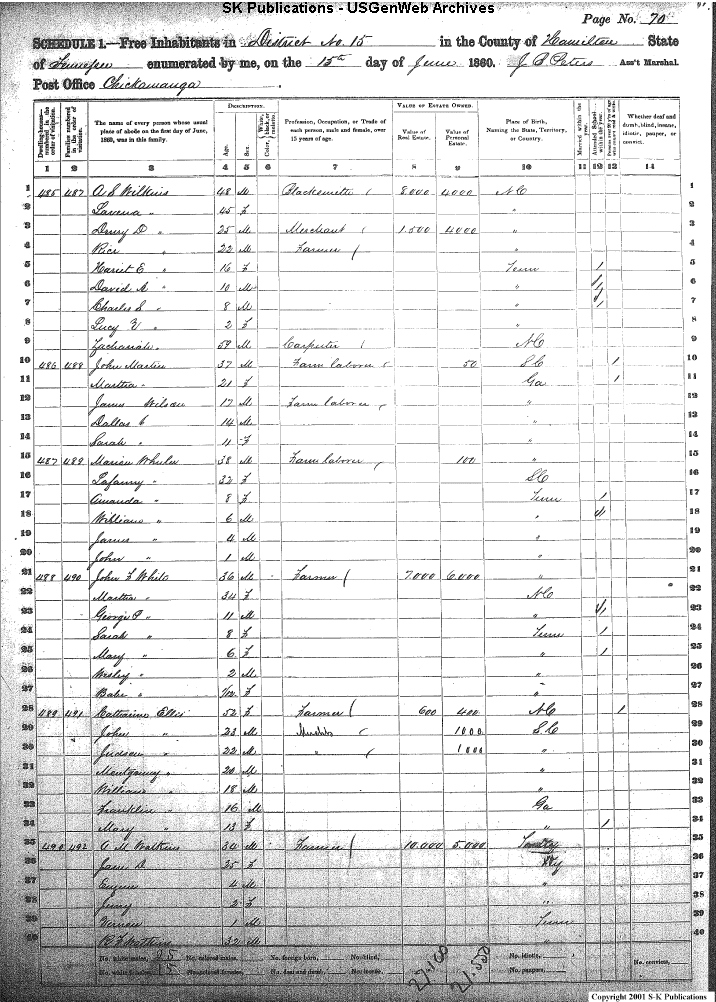 SK Publications - USGenWeb Archives
Page No. 70
SCHEDULE 1.—Free Inhabitants in District No. 15 in the County of Hamilton State
of Tennessee enumerated by me, on the 15th day of June 1860. J B Peters Ass't Marshal.
Post Office Chickamauga
Dwelling-houses—numbered in the order of visitation.
Families numbered in the order of visitation.
The name of every person whose usual place of abode on the first day of June, 1860, was in this family.
DESCRIPTION.
Age.
Sex.
Color, White, black, or mulatto.
Profession, Occupation, or Trade of each person, male and female, over 15 years of age.
VALUE OF ESTATE OWNED.
Value of Real Estate.
Value of Personal Estate.
Place of Birth, Naming the State, Territory, or Country.
Married within the year.
Attended School within the year.
Whether deaf and dumb, blind, insane, idiotic, pauper, or convict.
1 2 3 4 5 6 7 8 9 10 11 12 13 14
1 485 487 A S Wilkins 48 M Blacksmith 8000 4000 NC 1
2 Lavena " 45 F " 2
3 Drury D " 25 M Merchant 1.500 4000 " 3
4 Rice " 22 M Farmer " 4
5 Hariet E " 16 F Tenn 1 5
6 David A " 10 M " 1 6
7 Charles S " 8 M " 1 7
8 Lucy V " 2 F " 8
9 Zachariah " 59 M Carpenter NC 9
10 486 488 John Martin 37 M Farm laborer 50 SC 1 10
11 Martha " 21 F Ga 1 11
12 James Wilson 17 M Farm laborer " 12
13 Dallas C 14 M " 13
14 Sarah " 11 F " 14
15 487 489 Marion Wheeler 38 M Farm laborer 100 " 15
16 " 32 F SC 16
17 Amanda " 8 F Tenn 1 17
18 William " 6 M " 1 18
19 James " 4 M " 19
20 John " 1 M " 20
21 488 490 John F White 36 M Farmer 7.000 6.000 " 21
22 Martha " 34 F NC 22
23 George P " 11 M " 1 23
24 Sarah " 8 F Tenn 1 24
25 Mary " 6 F " 1 25
26 Wesley " 2 M " 26
27 Babe " F " 27
28 489 491 Catharine Ellis 52 F Farmer 600 400 NC 1 28
29 John " 23 M 1000 S.C 29
30 Judson " 22 M " 1000 " 30
31 Montgomery " 20 M " 31
32 William " 18 M " 32
33 Franklin " 16 M Ga 33
34 Mary " 13 F " 1 34
35 490 492 A M Watkins 34 M Farmer 10.000 5.000 Ky 35
36 Jane D 35 F Ky 36
37 Eugene " 4 M " 37
38 Jenny " 2 F " 38
39 Vernon " 1 M Tenn 39
40 Watkins 32 M " 40
No. white males, 25 No. colored males, No. foreign born, No. blind, 27.100 21.550 No. idiotic, No. convicts,
No. white females, 15 No. colored females, No. deaf and dumb, No. insane, No. paupers,
Copyright 2001 S-K Publications